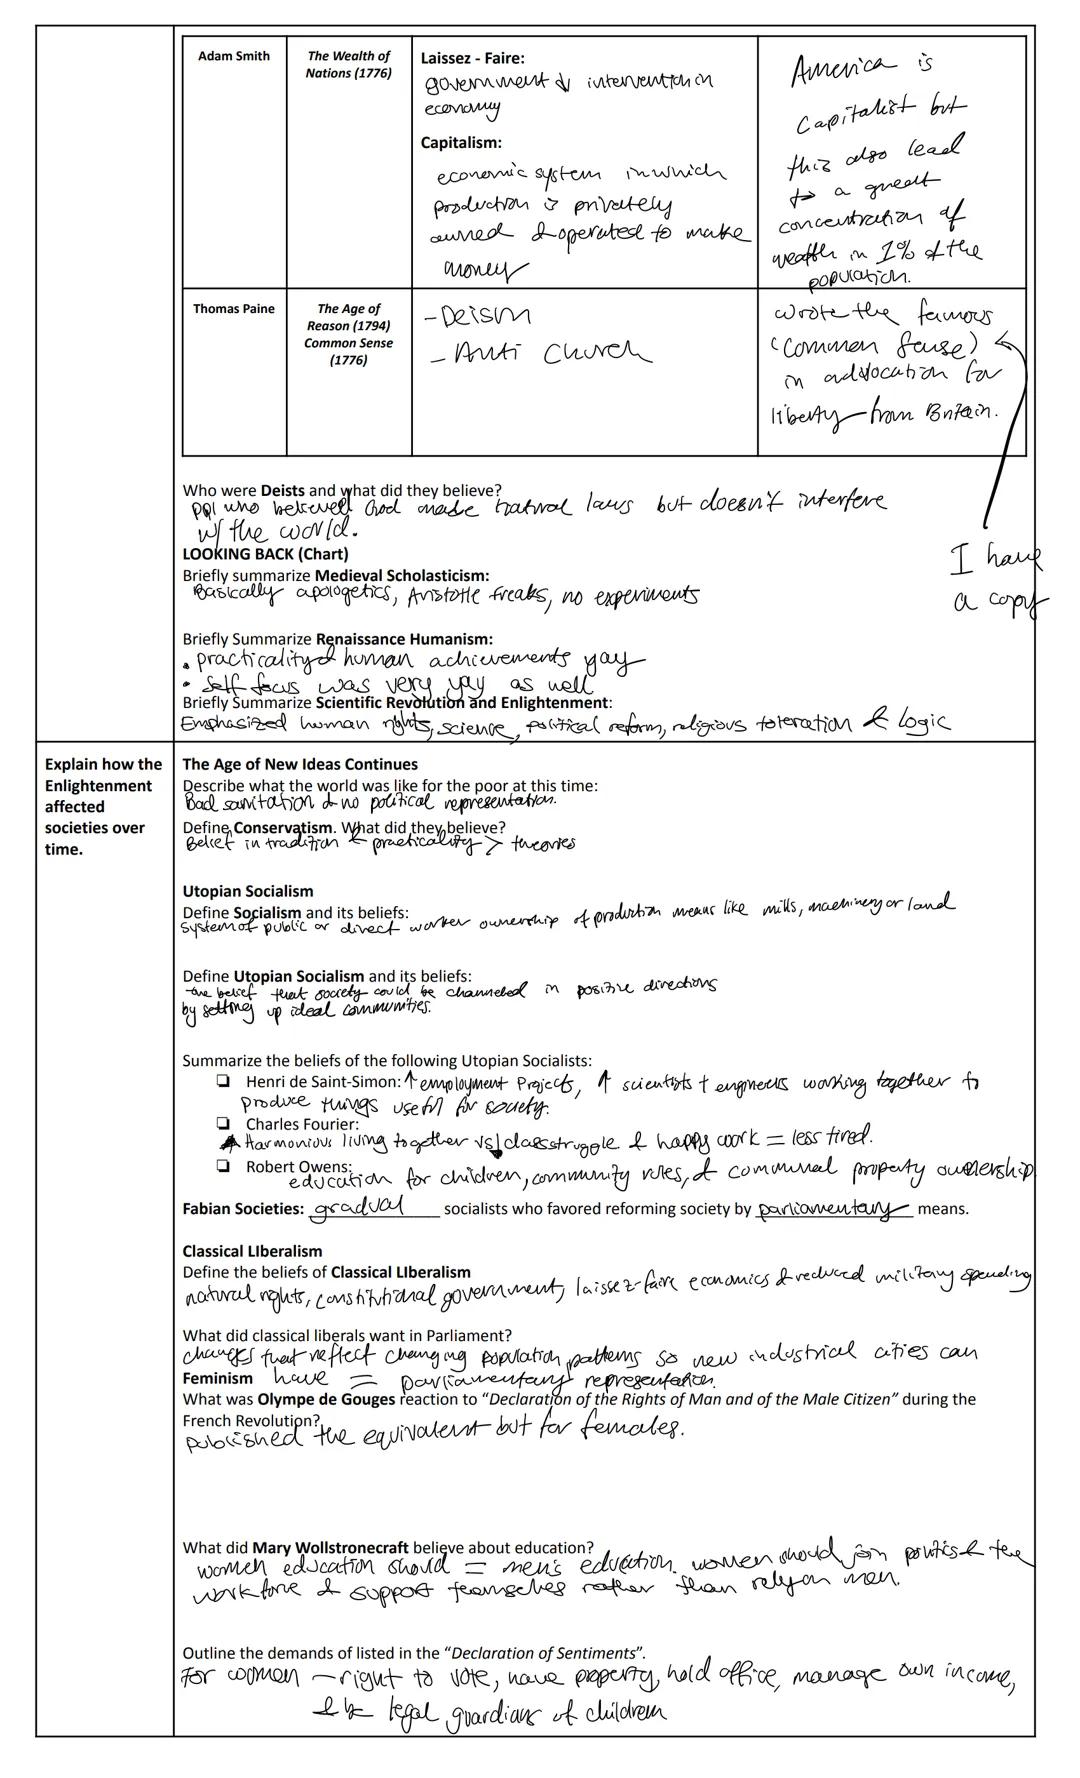 Adam Smith
The Wealth of
Nations (1776)
Laissez - Faire:
government ↓ intervention in
economy
Capitalism:
economic system in which
production is privately
owned & operated to make
money
America is
capitalist but
this also lead
to a great
concentration of
wealth in 1% of the
population.
Thomas Paine
The Age of
Reason (1794)
Common Sense
(1776)
- Deism
- Anti Church
wrote the famous
(Common Sense)
in advocation for
liberty from Britain.
I have
a copy
Who were Deists and what did they believe?
ppl who believed God made natural laws but doesn't interfere
w/ the world.
LOOKING BACK (Chart)
Briefly summarize Medieval Scholasticism:
Basically apologetics, Aristotle freaks, no experiments
Briefly Summarize Renaissance Humanism:
• practicality & human achievements yay
• self focus was very yay as well
Briefly Summarize Scientific Revolution and Enlightenment:
Emphasized human rights, science, political reform, religious toleration & logic
Explain how the
Enlightenment
affected
societies over
time.
The Age of New Ideas Continues
Describe what the world was like for the poor at this time:
Bad sanitation & no political representation.
Define Conservatism. What did they believe?
Belief in tradition & practicality > theories
Utopian Socialism
Define Socialism and its beliefs:
system of public or direct worker ownership of production means like mills, machinery or land
Define Utopian Socialism and its beliefs:
the belief that society could be channeled in positive directions
by setting up ideal communities.
Summarize the beliefs of the following Utopian Socialists:
❏ Henri de Saint-Simon: ↑ employment Projects, ↑ scientists + engineers working together to
produce things useful for society.
❏ Charles Fourier:
Harmonious living together vs class struggle & happy work = less tired.
❏ Robert Owens:
education for children, community rules, & communal property ownership
Fabian Societies: gradual socialists who favored reforming society by parliamentary means.
Classical LIberalism
Define the beliefs of Classical LIberalism
natural rights, constitutional government, laissez-faire economics & reduced military spending
What did classical liberals want in Parliament?
changes that reflect changing population patterns so new industrial cities can
have = parliamentary representation.
Feminism
What was Olympe de Gouges reaction to “Declaration of the Rights of Man and of the Male Citizen” during the
French Revolution?
published the equivalent but for females.
What did Mary Wollstronecraft believe about education?
women education should = men's education. women should join politics & the
workforce & support themselves rather than rely on men.
Outline the demands of listed in the “Declaration of Sentiments”.
For women — right to vote, have property, hold office, manage own income,
& be legal guardians of children